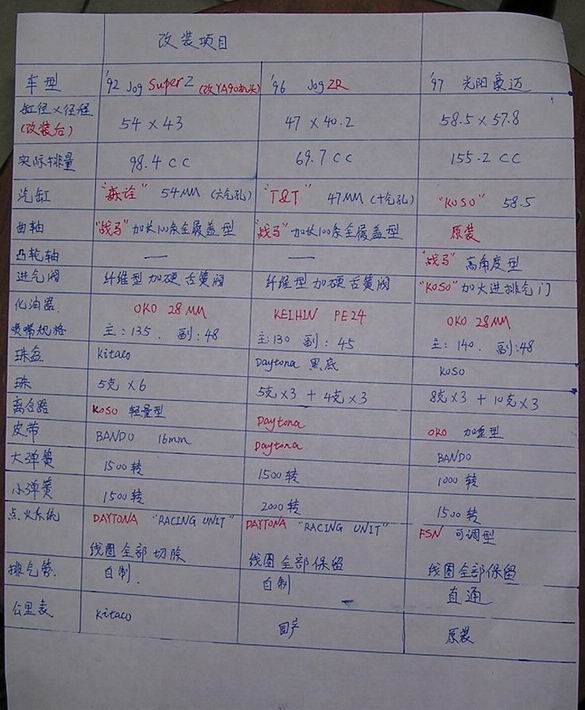 改装项目
车型 '92 Jog Super Z (改YA90机头) '96 Jog ZR '97 光阳豪迈
缸径×径程 (改装后) 54×43 47×40.2 58.5×57.8
实际排量 98.4 CC 69.7 CC 155.2 CC
汽缸 54MM (六气孔) "T&T" 47MM (十气孔) "KOSO" 58.5
曲轴 "战马"加长100条全履盖型 "战马"加长100条全履盖型 原装
凸轮轴 — — "战马"高角度型
进气阀 纤维型加硬舌簧阀 纤维型加硬舌簧阀 "KOSO"加大进排气门
化油器 OKO 28MM KEIHIN PE24 OKO 28MM
喷嘴规格 主:135. 副:48 主:130 副:45 主:140. 副:48
珠盘 Kitaco Daytona 黑底 KOSO
珠 5克×6 5克×3+4克×3 8克×3+10克×3
离合器 KOSO 轻量型 Daytona OKO 加重型
皮带 BANDO 16mm Daytona BANDO
大弹簧 1500转 1500转 1000转
小弹簧 1500转 2000转 1500转
点火系统 DAYTONA "RACING UNIT" DAYTONA "RACING UNIT" FSN 可调型
线圈全部切除 线圈全部保留 线圈全部保留
排气管. 自制. 自制 直通
公里表 Kitaco 国产 原装